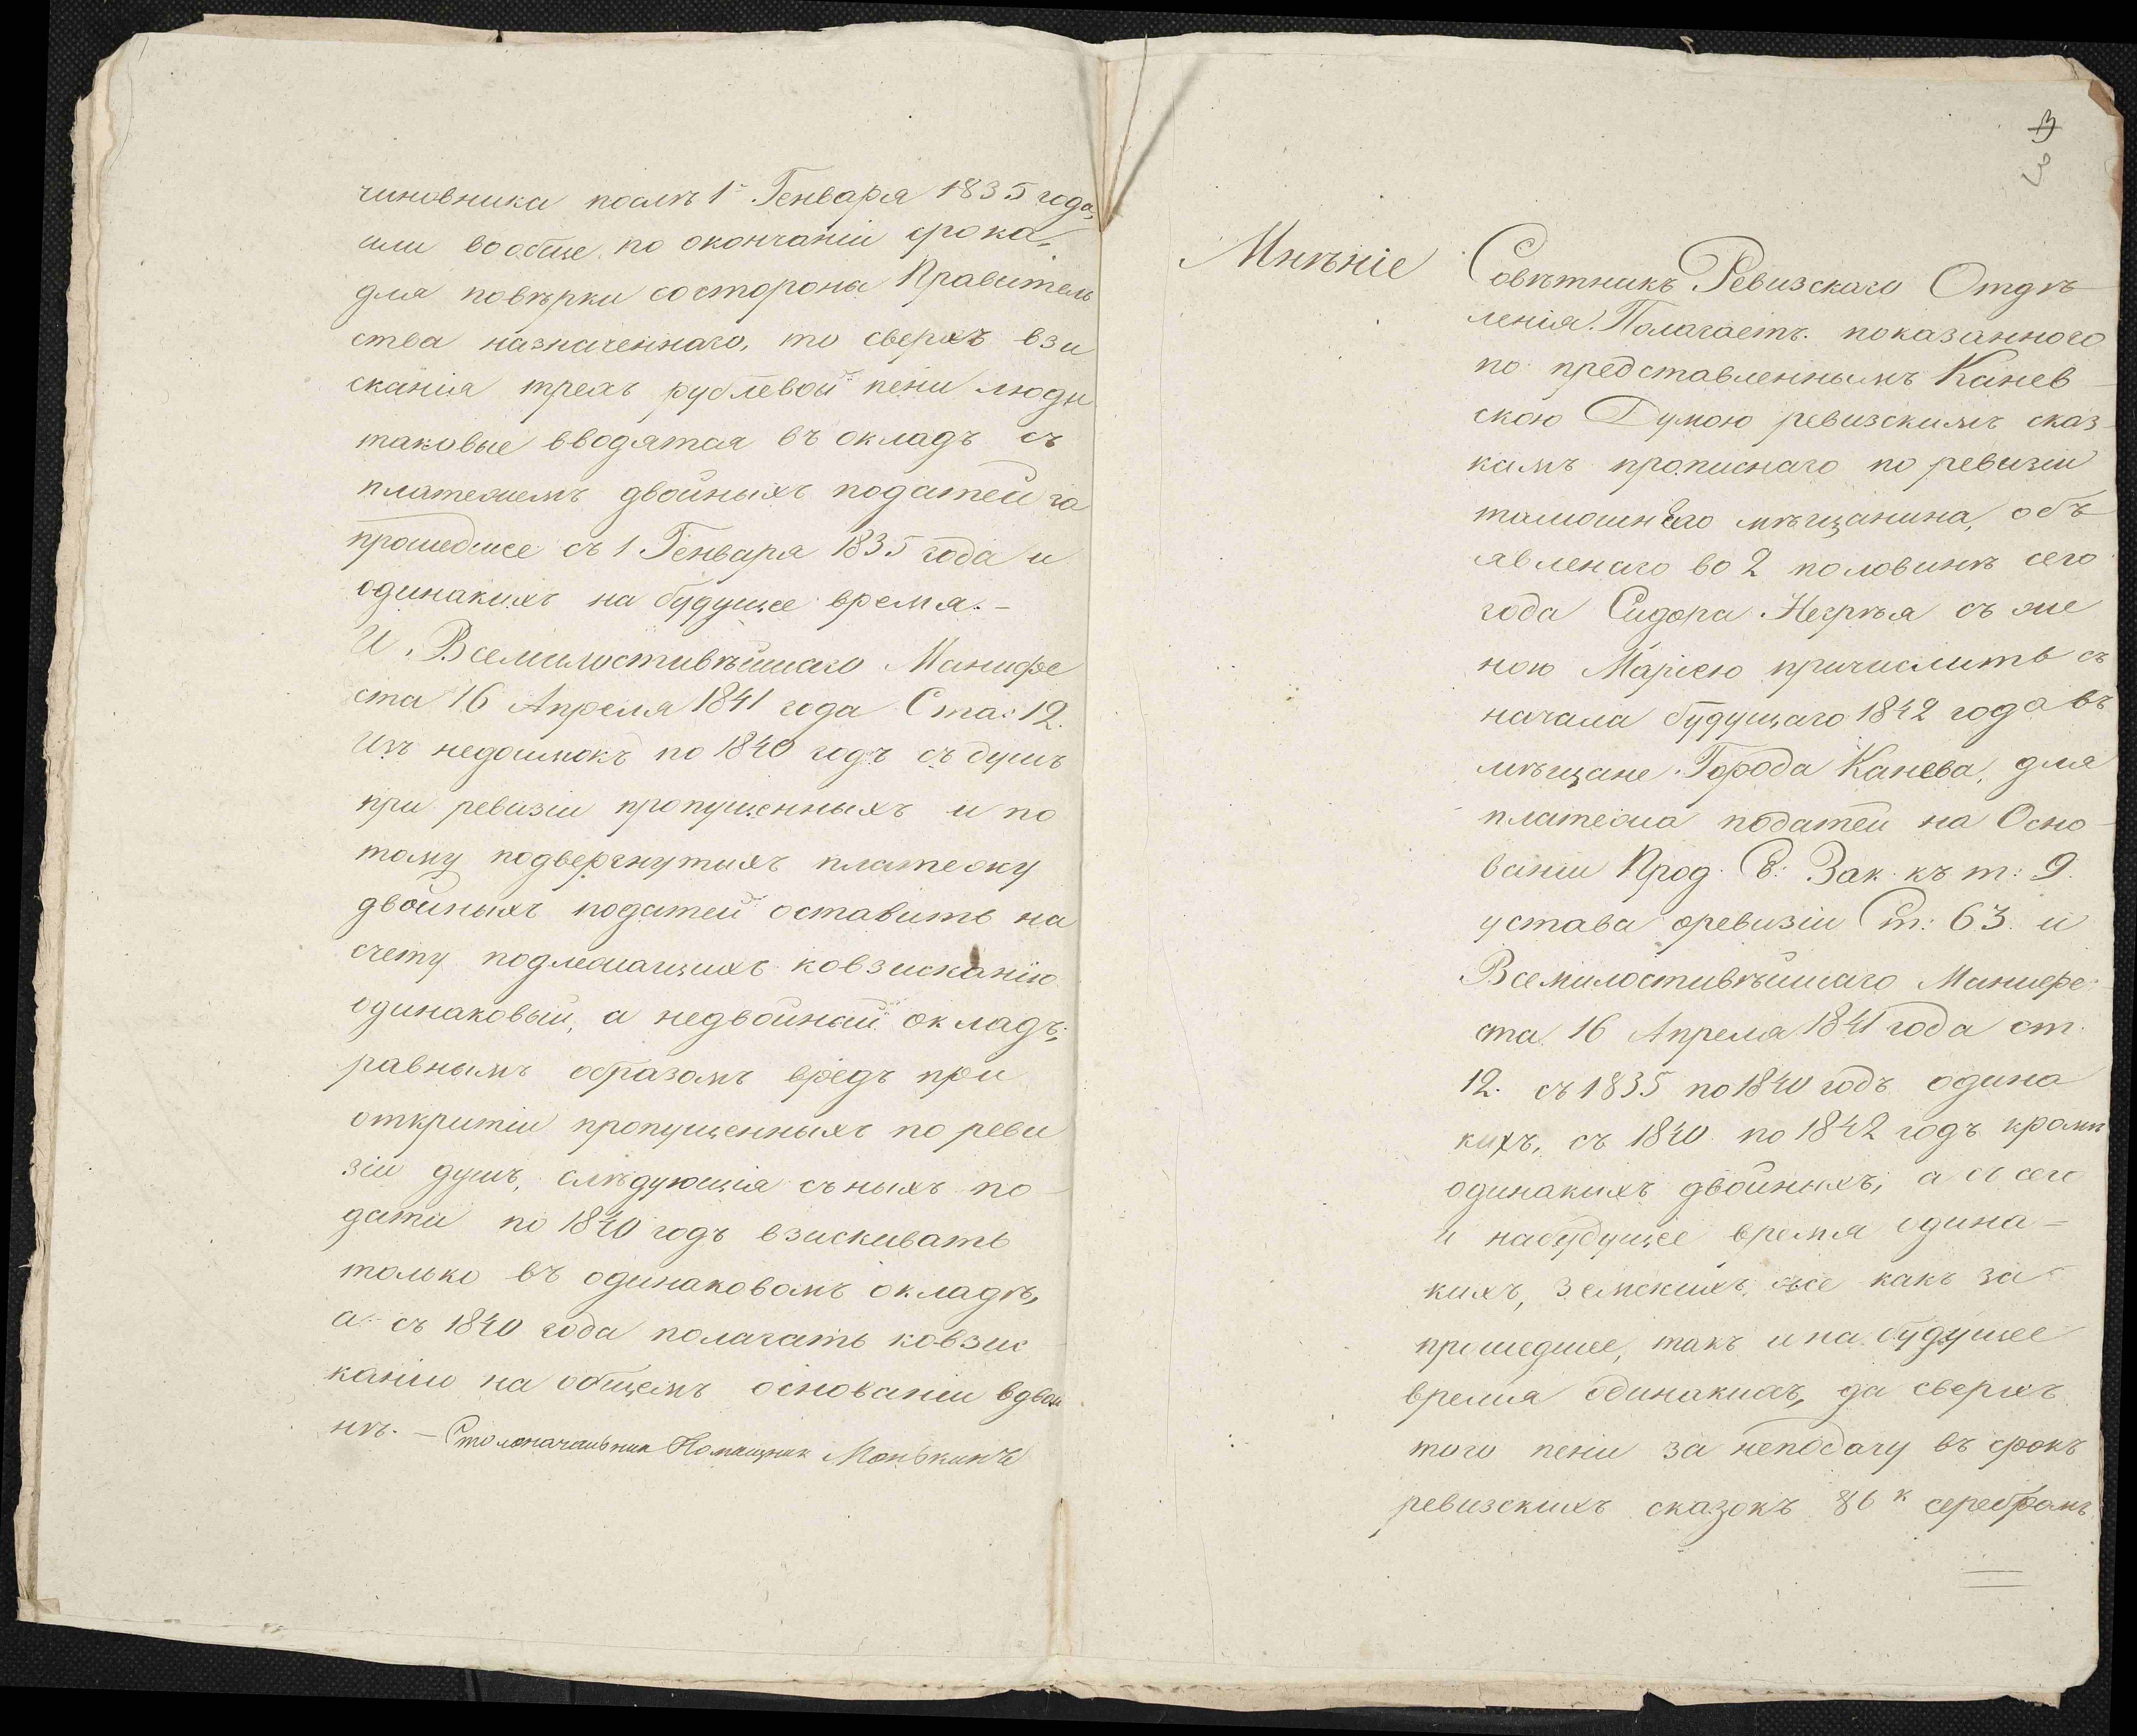 чиновника послѣ 1го Генваря 1835 года,
или вообще по окончаніи срока,
для повѣрки состороны Правитель
ства назначеннаго, то сверхъ взы
сканія трехъ рублевой пени люди
таковые вводятся въ окладъ съ
платежемъ двойныхъ податей за
прошедшее съ 1 Генваря 1835 года и
одинакихъ на будущее время. –
И. Всемилостивѣйшаго Манифе
ста 16 Апреля 1841 года Ста: 12.
Изъ недоимокъ по 1840 годъ съ душъ
при ревизіи пропущенныхъ и по
тому подвергнутыхъ платежу
двойныхъ податей оставить на
счету подлежащихъ ковзисканію
одинаковый, а недвойный окладъ;
равнымъ образомъ впредь при
открытіи пропущенныхъ по реви
зіи душъ, слѣдующія съ ныхъ по
дати по 1840 годъ взискивать
только въ одинаковомъ окладѣ,
а съ 1840 года полагать ковзис
канію на общемъ основаніи вдвой
нѣ. – Столоначальника Помощник
3
3
Мнѣніе
Совѣтникъ Ревизскаго Отдѣ
ленія. Полагаетъ. показанного
по представленнымъ Канев
скою Думою ревизскимъ сказ
камъ прописнаго по ревизіи
тамошнего мѣщанина, объ
явленаго во 2 половинѣ сего
года Сидора Негрѣя съ же
ною Маріею причислить съ
начала будущаго 1842 года въ
мѣщане Города Канева, для
платежа податей на Осно
ваніи Прод. Св: Зак. къ т: 9.
устава оревизіи Ст: 63. и
Всемилостивѣйшаго Манифе
ста 16 Апреля 1841 года ст.
12. съ 1835 по 1840 годъ одина
кихъ, съ 1840 по 1842 годъ кромѣ
одинакихъ двойныхъ, а съ сего
и набудущее время одина –
кихъ, Земскихъ же какъ за
прошедшее, такъ и на будущее
время одинакихъ, да сверхъ
того пени за неподачу въ срокъ
ревизскихъ сказокъ 86 к серебромъ